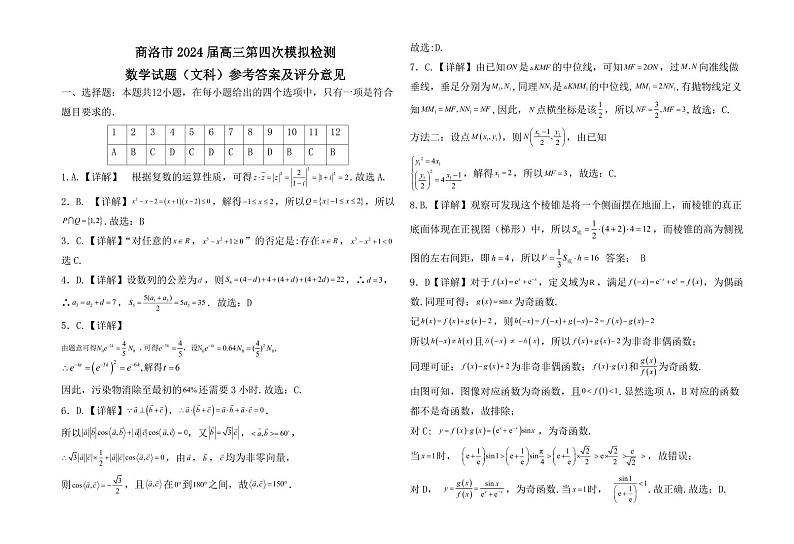 商洛市 2024 届高三第四次模拟检测
数学试题（文科）参考答案及评分意见
一、选择题：本题共12小题，在每小题给出的四个选项中，只有一项是符合
题目要求的．
1 2 3 4 5 6 7 8 9 10 11 12
A B C D C D C B D B C B
1.A.【详解】 根据复数的运算性质，可得 z·z̄=|z|²=|2/(1-i)|²=|1+i|²=2.故选 A.
2. B. 【详解】x²-x-2=(x+1)(x-2)≤0，解得-1≤x≤2，所以Q={x|-1≤x≤2}，所以
P∩Q={1,2}.故选：B
3. C.【详解】“对任意的x∈R，x³-x²+1≥0”的否定是:存在x∈R，x³-x²+1<0
选 C.
4. D.【详解】设数列的公差为d，则S₄=(4-d)+4+(4+d)+(4+2d)=22，∴d=3，
∴a₃=a₂+d=7，S₅=5(a₁+a₅)/2=5a₃=35．故选：D
5. C.【详解】
由题意可得N₀e^(-3k)=4/5 N₀，可得e^(-3k)=4/5，设N₀e^(-kt)=0.64N₀=(4/5)²N₀,
∴e^(-kt)=(e^(-3k))²=e^(-6k),解得t=6
因此，污染物消除至最初的64%还需要 3 小时.故选；C.
6. D.【详解】∵a⊥(b+c)，∴a·(b+c)=a·b+a·c=0．
所以|a||b|cos⟨a,b⟩+|a||c|cos⟨a,c⟩=0，又|b|=√3|c|，<a,b>=60°，
∴√3|a||c|×1/2+|a||c|cos⟨a,c⟩=0，由a，b，c均为非零向量，
则cos⟨a,c⟩=-√3/2，且⟨a,c⟩在0°到180°之间，故⟨a,c⟩=150°．
故选:D.
7. C.【详解】由已知ON是△KMF的中位线，可知MF=2ON，过M,N向准线做
垂线，垂足分别为M₁,N₁，同理N₁是△KMF的中位线，MM₁=2NN₁，有抛物线定义
知MM₁=MF,NN₁=NF,因此，N点横坐标是该1/2，所以NF=3/2,MF=3,故选；C.
方法二：设点M(x₁,y₁)，则N(x₁-1/2,y₁/2)，由已知
{y₁²=4x₁ (y₁/2)²=4(x₁-1)/2，解得x₁=2，所以MF=3，故选；C.
8.B.【详解】观察可发现这个棱锥是将一个侧面摆在地面上，而棱锥的真正
底面体现在正视图（梯形）中，所以S底=1/2·(4+2)·4=12，而棱锥的高为侧视
图的左右间距，即h=4，所以V=1/3 S底·h=16 答案； B
9. D【详解】对于f(x)=eˣ+e⁻ˣ，定义域为R，满足f(-x)=e⁻ˣ+eˣ=f(x)，为偶函
数.同理可得；g(x)=sinx为奇函数.
记h(x)=f(x)+g(x)-2，则h(-x)=f(-x)+g(-x)-2=f(x)-g(x)-2
所以h(-x)≠h(x)且h(-x)≠-h(x)，所以h(x)为非奇非偶函数；
同理可证：f(x)-g(x)+2为非奇非偶函数；f(x)·g(x)和g(x)/f(x)为奇函数.
由图可知，图像对应函数为奇函数，且0<f(1)<1.显然选项 A，B 对应的函数
都不是奇函数，故排除；
对 C: y=f(x)·g(x)=(eˣ+e⁻ˣ)sinx，为奇函数.
当x=1时，(e+1/e)sin1>(e+1/e)sinπ/4=(e+1/e)×√2/2>e×√2/2>2×√2/2=√2，故错误;
对 D， y=g(x)/f(x)=sinx/(eˣ+e⁻ˣ)，为奇函数.当x=1时，sin1/(e+1/e)<1.故正确.故选：D.